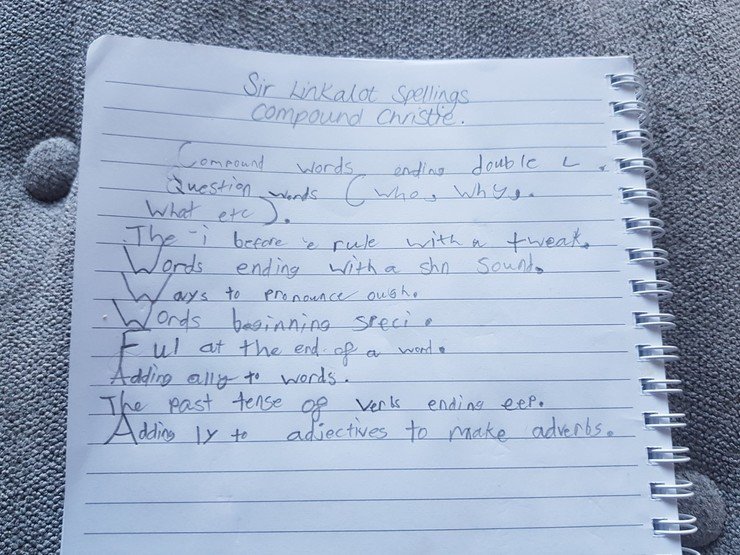 Sir Linkalot Spellings
Compound Christie.
Compound words ending double L.
Question words (who, why,
What etc).
The -i before e rule with a tweak.
Words ending with a shn sound.
Ways to pronounce ough.
Words beginning speci.
Ful at the end of a word.
Adding ally to words.
The past tense of verbs ending eep.
Adding ly to adjectives to make adverbs.